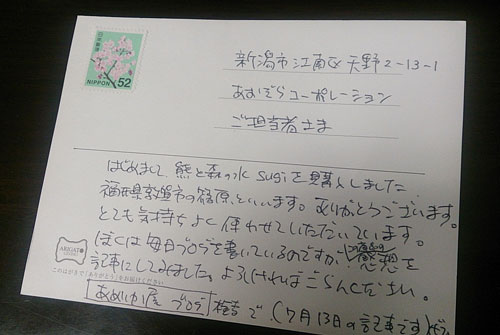 日本郵便
NIPPON 52
新潟市江南区天野2-13-1
あおぞらコーポレーション
ご担当者さま
はじめまして 熊と森の水 sugiを購入しました
福井県敦賀市の篠原といいます。ありがとうございます。
とても気持ちよく使わせていただいています。
ぼくは毎日ブログを書いているのですが、感想を
記事にしてみました。よろしければごらんください。
このはがきで「ありがとう」をお届けください
ブログ 検索 で (7月13日の記事です)